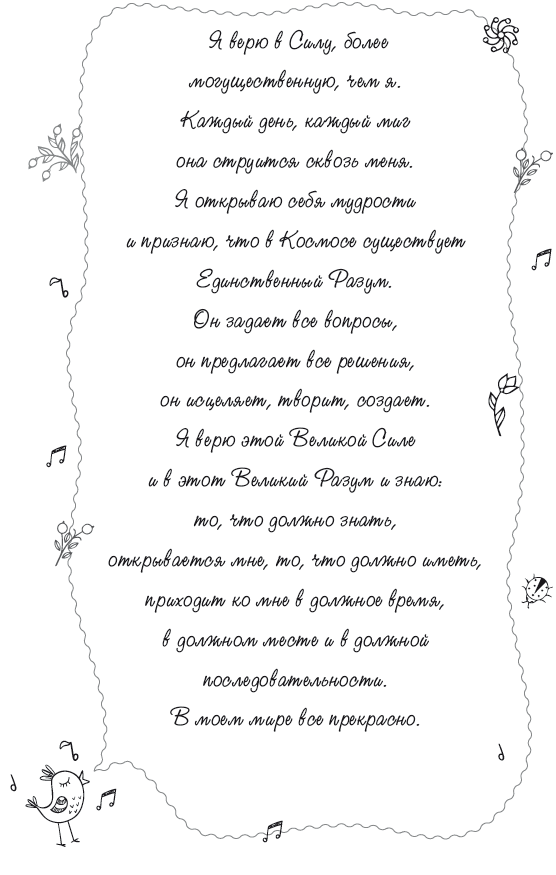 Я верю в Силу, более
могущественную, чем я.
Каждый день, каждый миг
она струится сквозь меня.
Я открываю себя мудрости
и признаю, что в Космосе существует
Единственный Разум.
Он задает все вопросы,
он предлагает все решения,
он исцеляет, творит, создает.
Я верю этой Великой Силе
и в этот Великий Разум и знаю:
то, что должно знать,
открывается мне, то, что должно иметь,
приходит ко мне в должное время,
в должном месте и в должной
последовательности.
В моем мире все прекрасно.